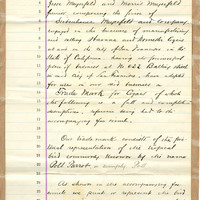 Jure Mayerfeld and Morris Mayerfeld
firm composing the firm of
Sichenhauer Mayerfeld and Company
engaged in the business of manufacturing
and selling Havana and Domestic Cigars
at and in the City of San Francisco in the
State of California having the principal
place of business at No 422 Battery Street
in said City of San Francisco, have adopted
for use in our said business a
Trade Mark for Cigars of which
the following is a full and complete
description, reference being had to the
accompanying fac simile.
Our trade mark consists of the pic-
torial representation of the tropical
bird commonly known by the name
Poll Parrot or simply Poll
As shown in the accompanying fac
simile we print or represent the bird